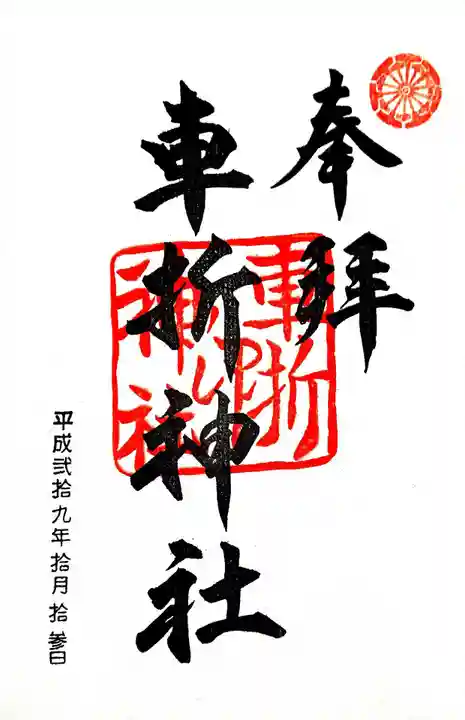 奉拝
車折神社
平成弐拾九年拾月拾参日